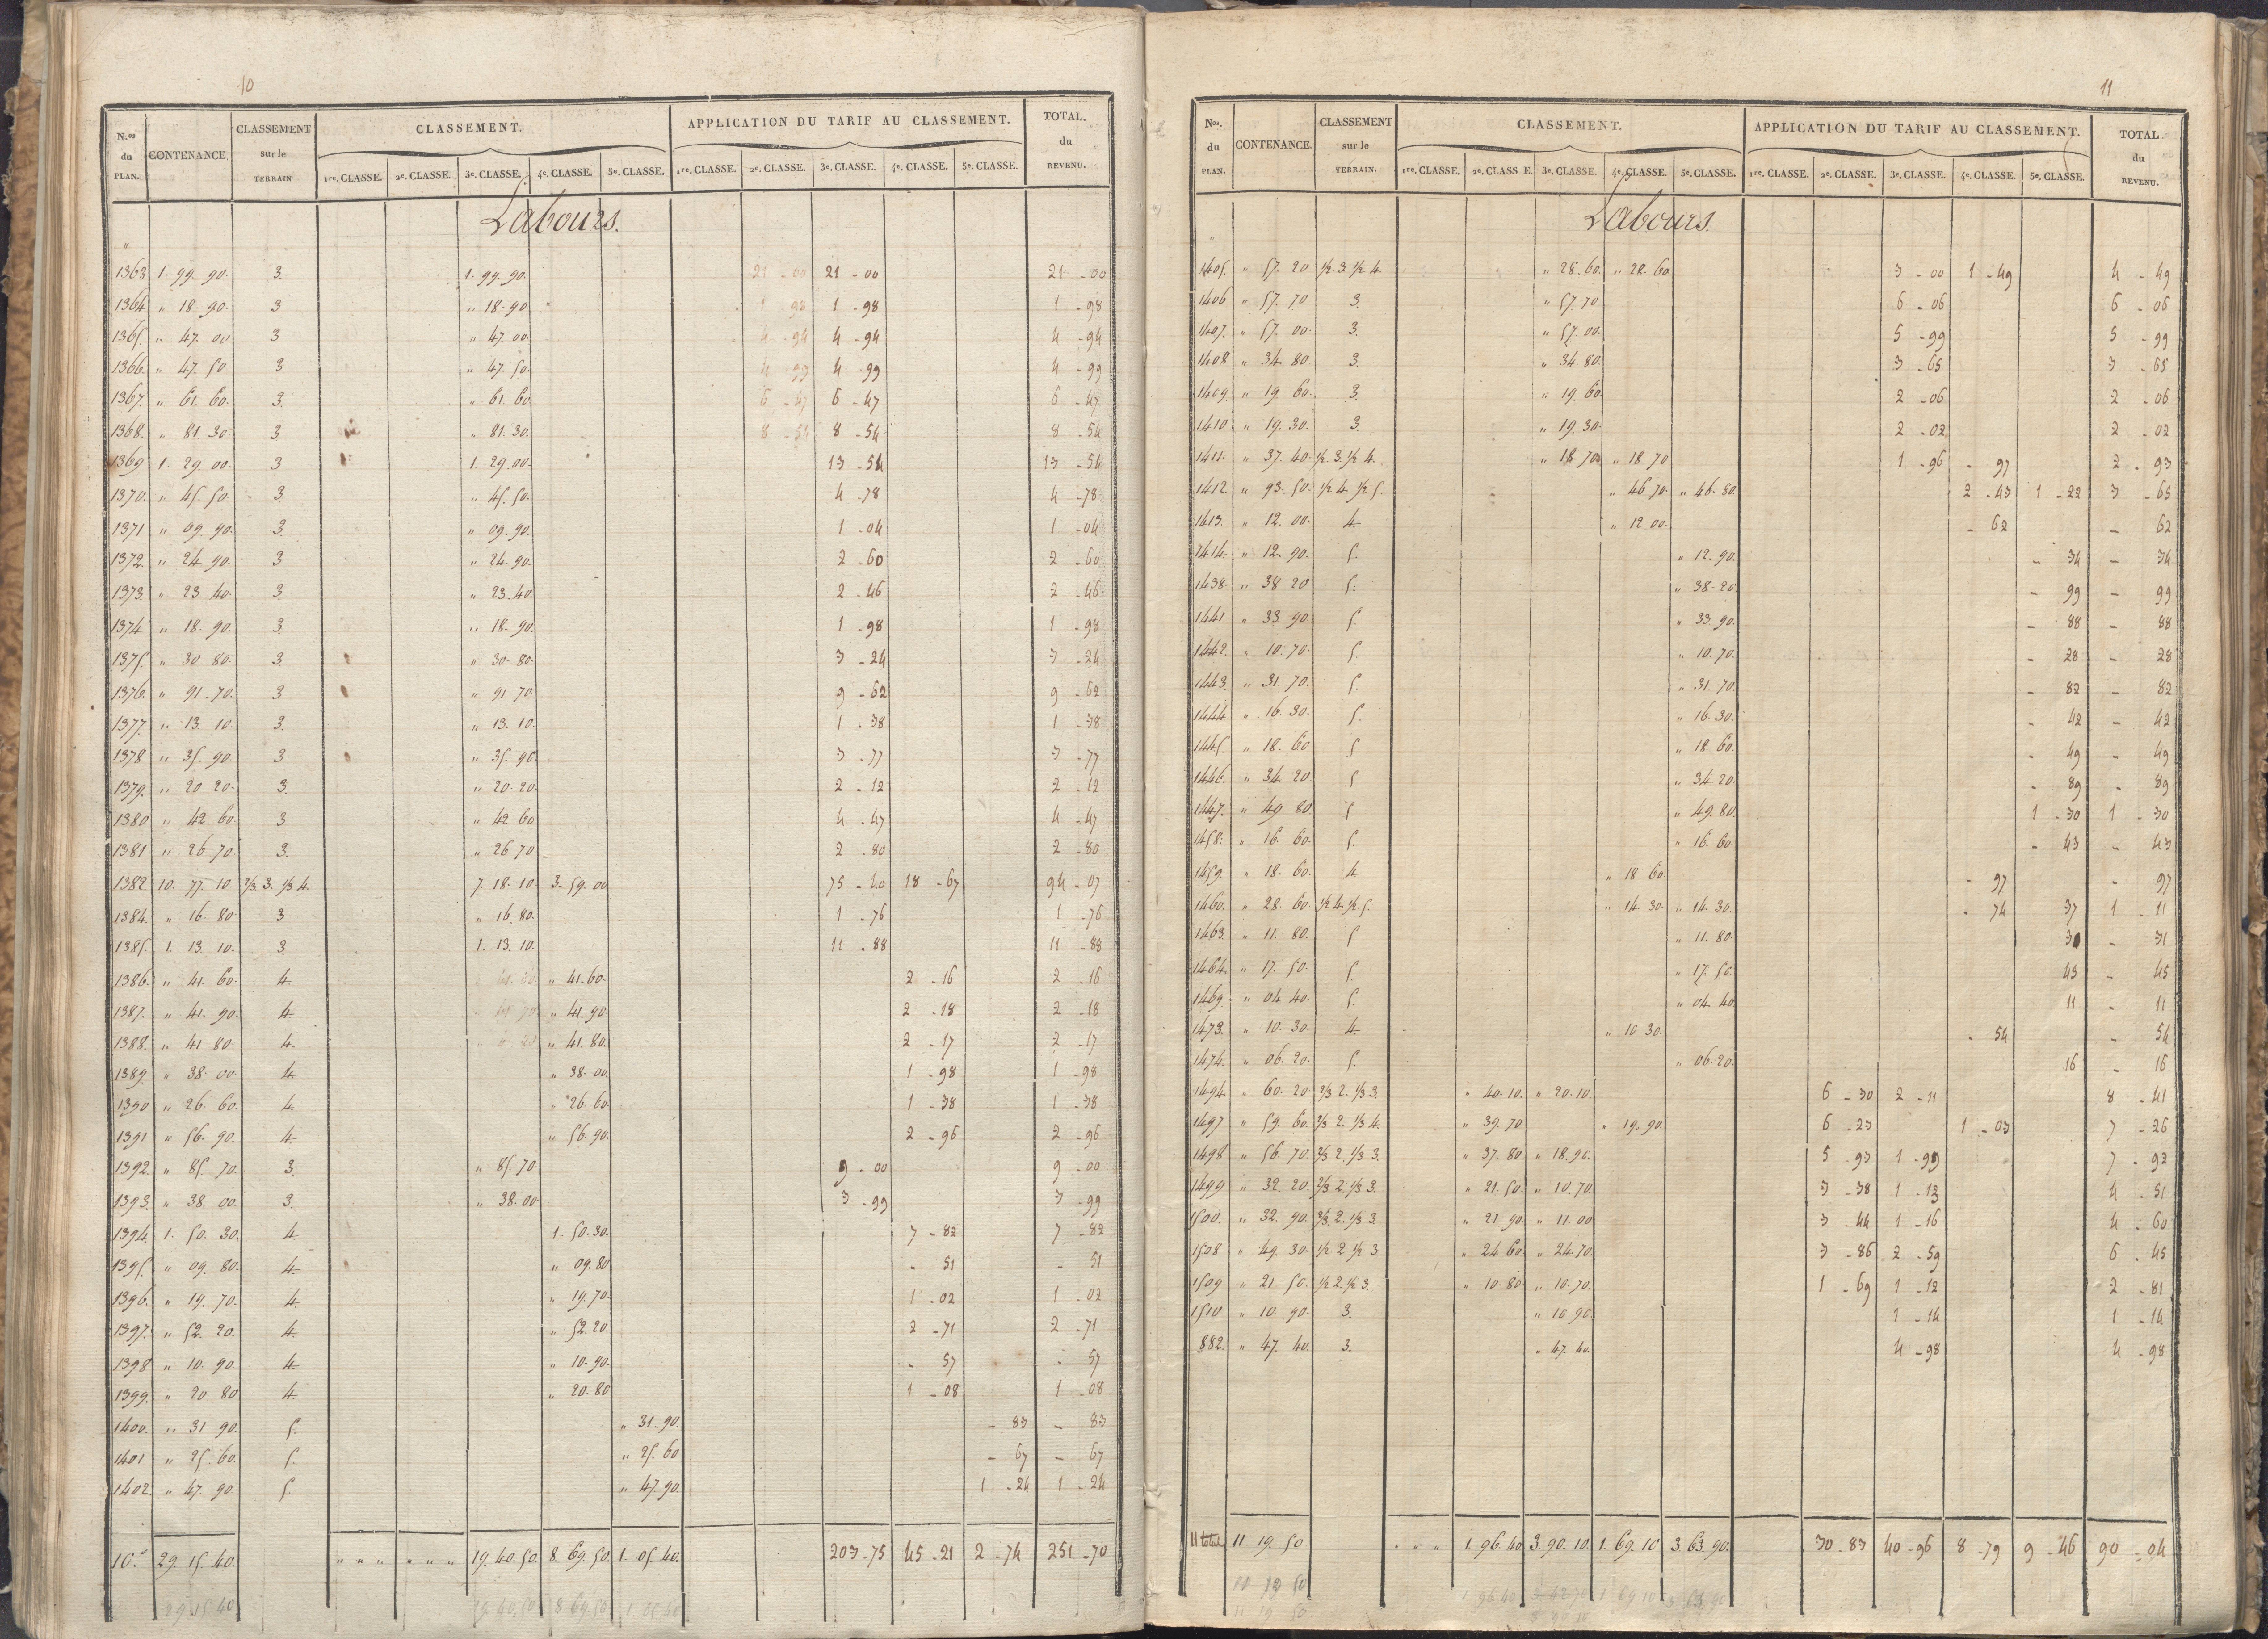 10
N.os du PLAN. CONTENANCE. CLASSEMENT sur le TERRAIN CLASSEMENT. APPLICATION DU TARIF AU CLASSEMENT. TOTAL. du REVENU.
1re. CLASSE. 2e. CLASSE. 3e. CLASSE. 4e. CLASSE. 5e. CLASSE. 1re. CLASSE. 2e. CLASSE. 3e. CLASSE. 4e. CLASSE. 5e. CLASSE.
Labours.
"
1363 1. 99. 90. 3. 1. 99. 90. 21 - 00 21 - 00 21 - 00
1364 " 18. 90. 3 " 18. 90 1 - 98 1 - 98 1 - 98
1365. " 47. 00 3 " 47. 00. 4 - 94 4 - 94 4 - 94
1366. " 47. 50 3 " 47. 50. 4 - 99 4 - 99 4 - 99
1367. " 61. 60. 3. " 61. 60 6 - 47 6 - 47 6 - 47
1368. " 81. 30. 3 " 81. 30. 8 - 54 8 - 54 8 - 54
1369 1. 29. 00. 3 1. 29. 00. 13 - 54 13 - 54
1370. " 45. 50. 3 " 45. 50. 4 - 78 4 - 78
1371 " 09. 90. 3. " 09. 90. 1 - 04 1 - 04
1372. " 24. 90. 3 " 24. 90. 2 - 60 2 - 60
1373. " 23. 40. 3. " 23. 40. 2 - 46 2 - 46
1374 " 18. 90. 3 " 18. 90. 1 - 98 1 - 98
1375. " 30 80. 3. " 30. 80. 3 - 24 3 - 24
1376. " 91. 70. 3 " 91 70. 9 - 62 9 - 62
1377. " 13. 10. 3. " 13. 10. 1 - 38 1 - 38
1378 " 35. 90 3 " 35. 90. 3 - 77 3 - 77
1379. " 20 20. 3. " 20. 20. 2 - 12 2 - 12
1380 " 42 60. 3 " 42 60 4 - 47 4 - 47
1381 " 26 70. 3. " 26 70 2 - 80 2 - 80
1382. 10. 77. 10. 2/3 3. 1/3 4. 7. 18. 10. 3. 59. 00 75 - 40 18 - 67 94 - 07
1384. " 16. 80. 3 " 16. 80. 1 - 76 1 - 76
1385. 1. 13. 10. 3. 1. 13. 10. 11 - 88 11 - 88
1386. " 41. 60. 4. " 41. 60. 2 - 16 2 - 16
1387. " 41. 90. 4. " 41. 90. 2 - 18 2 - 18
1388. " 41 80. 4. " 41. 80. 2 - 17 2 - 17
1389. " 38. 00. 4. " 38. 00. 1 - 98 1 - 98
1390 " 26. 60. 4. " 26. 60. 1 - 38 1 - 38
1391 " 56. 90. 4. " 56. 90. 2 - 96 2 - 96
1392. " 85. 70. 3. " 85. 70. 9 - 00 9 - 00
1393. " 38. 00. 3. " 38. 00 3 - 99 3 - 99
1394. 1. 50. 30. 4. 1. 50. 30. 7 - 82 7 - 82
1395. " 09. 80. 4. " 09. 80 - 51 - 51
1396. " 19. 70. 4. " 19. 70. 1 - 02 1 - 02
1397. " 52. 20. 4. " 52. 20. 2 - 71 2 - 71
1398 " 10. 90. 4. " 10. 90. - 57 - 57
1399. " 20 80 4. " 20. 80 1 - 08 1 - 08
1400. " 31 90. 5. " 31. 90. - 83 - 83
1401 " 25. 60. 5. " 25. 60 - 67 - 67
1402. " 47. 90. 5. " 47. 90. 1 - 24 1 - 24
10. 29. 15. 40. " " " " " " 19. 40. 50. 8. 69. 50. 1. 05. 40. 203 - 75 45 - 21 2 - 74 251 - 70
29 15 40 19 40 50 8 69 50 1 05 40
11
Nos. du PLAN. CONTENANCE. CLASSEMENT sur le TERRAIN. CLASSEMENT. APPLICATION DU TARIF AU CLASSEMENT. TOTAL. du REVENU.
1re. CLASSE. 2e. CLASS E. 3e. CLASSE. 4e. CLASSE. 5e. CLASSE. 1re. CLASSE. 2e. CLASSE. 3e. CLASSE. 4e. CLASSE. 5e. CLASSE.
Labours.
"
1405. " 57. 20 1/2. 3. 1/2 4. " 28. 60. " 28. 60 3 - 00 1 - 49 4 - 49
1406 " 57. 70 3. " 57. 70 6 - 06 6 - 06
1407. " 57. 00. 3. " 57. 00. 5 - 99 5 - 99
1408 " 34. 80. 3. " 34. 80. 3 - 65 3 - 65
1409. " 19. 60. 3. " 19. 60. 2 - 06 2 - 06
1410 " 19. 30. 3. " 19. 30. 2 - 02 2 - 02
1411. " 37. 40. 1/2. 3. 1/2 4. " 18. 70 " 18 70 1 - 96 - 97 2 - 93
1412. " 93. 50. 1/2 4. 1/2 5. " 46 70. " 46. 80. 2 - 43 1 - 22 3 - 65
1413. " 12. 00. 4. " 12 00. - 62 - 62
1414. " 12. 90. 5. " 12. 90. - 34 - 34
1438. " 38 20 5. " 38. 20. - 99 - 99
1441. " 33. 90. 5. " 33. 90. - 88 - 88
1442. " 10. 70. 5. " 10. 70. - 28 - 28
1443 " 31. 70. 5. " 31. 70. - 82 - 82
1444. " 16. 30. 5. " 16. 30. - 42 - 42
1445. " 18. 60 5 " 18. 60. - 49 - 49
1446. " 34. 20 5 " 34. 20. - 89 - 89
1447. " 49. 80. 5 " 49. 80. 1 - 30 1 - 30
1458. " 16. 60. 5. " 16. 60 - 43 - 43
1459. " 18. 60. 4. " 18 60. - 97 - 97
1460. " 28. 60. 1/2 4. 1/2 5. " 14. 30. " 14. 30. - 74 37 1 - 11
1463. " 11. 80. 5 " 11. 80. - 31
1464. " 17. 50. 5 " 17. 50. 45 - 45
1469. " 04 40. 5. " 04. 40. 11 - 11
1473. " 10. 30. 4. " 10 30. - 54 - 54
1474. " 06. 20. 5. " 06. 20. 16 - 16
1494. " 60. 20. 2/3 2. 1/3 3. " 40. 10. " 20. 10. 6 - 30 2 - 11 8 - 41
1497 " 59. 60. 2/3 2. 1/3 4. " 39. 70 " 19. 90. 6 - 23 1 - 03 7 - 26
1498 " 56. 70. 2/3 2. 1/3 3. " 37. 80 " 18. 90. 5 - 93 1 - 99 7 - 92
1499 " 32. 20. 2/3 2. 1/3 3. " 21. 50. " 10. 70. 3 - 38 1 - 13 4 - 51
1500. " 32. 90. 2/3. 2. 1/3 3. " 21. 90. " 11. 00 3 - 44 1 - 16 4 - 60
1508 " 49. 30. 1/2 2 1/2 3 " 24 60. " 24. 70. 3 - 86 2 - 59 6 - 45
1509 " 21. 50. 1/2 2. 1/2 3. " 10. 80. " 10. 70. 1 - 69 1 - 12 2 - 81
1510. " 10. 90. 3. " 10 90. 1 - 14 1 - 14
882. " 47. 40. 3. " 47. 40. 4 - 98 4 - 98
11 total 11 19. 50 " " " 1. 96. 40 3. 90. 10. 1. 69. 10 3 63. 90. 30 - 83 40 - 96 8 - 79 9 - 46 90 - 04
1 96 40 1 69 10 3 63 90
11 19 50 3 90 10